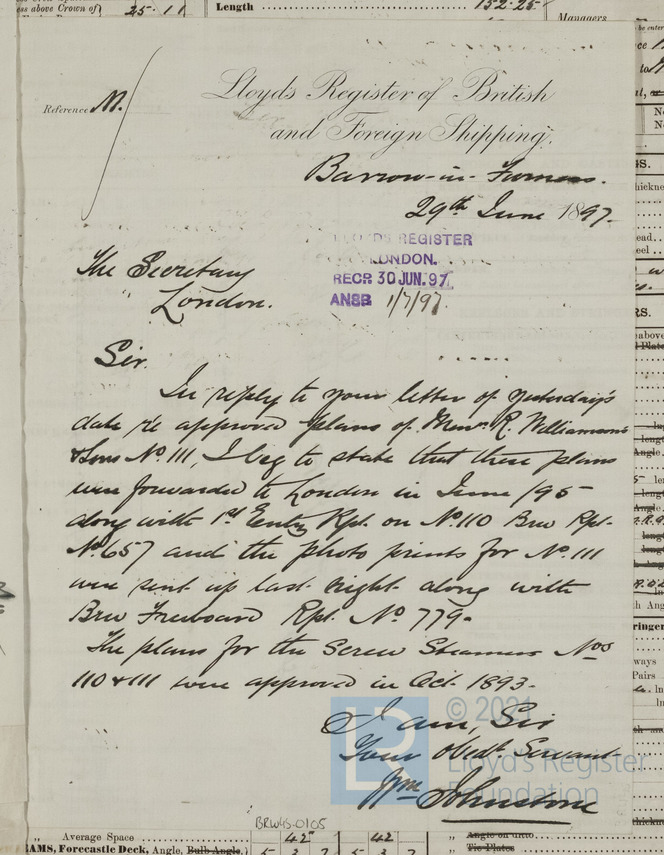 ess above Crown of} 25·11
Length 152·25
Managers
Reference M.
Lloyd's Register of British
and Foreign Shipping.
Barrow-in-Furness.
29th June 1897.
LLOYD'S REGISTER
LONDON.
RECD 30 JUN. 97
ANSD 1/7/97.
The Secretary
London.
Sir.
In reply to your letter of yesterday's
date re approved plans of Messrs R. Williamson
& Sons No. 111, I beg to state that these plans
were forwarded to London in June /95
along with 1st Entry Rpt. on No. 110 Brw Rpt.
No. 657 and the photo prints for No. 111
were sent up last night along with
Brw Freeboard Rpt. No 779.
The plans for the Screw Steamers Nos
110 & 111 were approved in Oct. 1893.
I am, Sir
Your Obedt Servant
Wm Johnstone
© 2021
LR
Lloyd's Register
Foundation
BRW45-0105
" Average Space 42" 42
AMS, Forecastle Deck, Angle, Bulb Angle,
" Angle on ditto
" Tie Plates